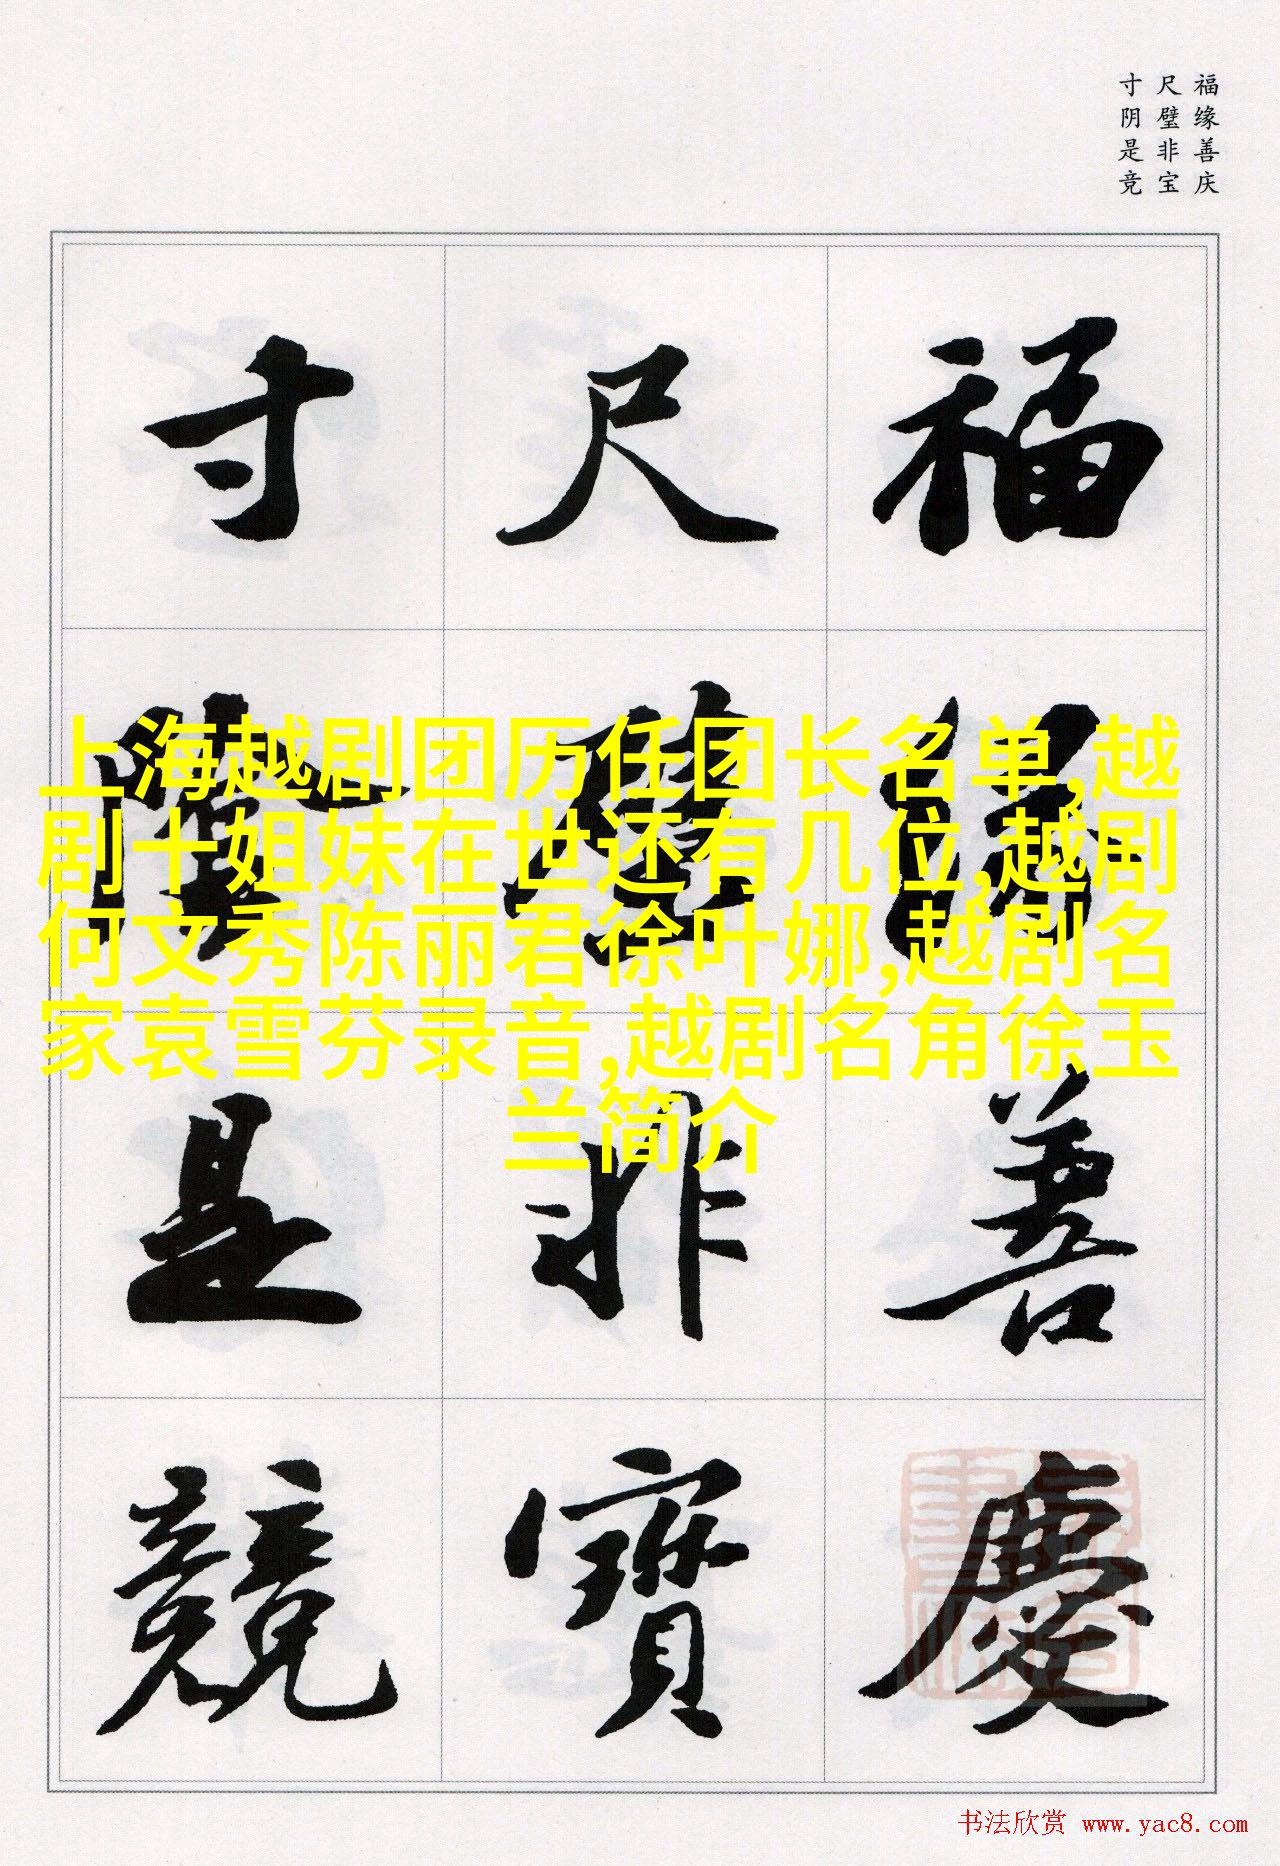 福缘善庆
尺璧非宝
寸阴是竞
福緣善慶
尺璧非寶
寸陰是競
上海越剧团历任团长名单,越
剧十姐妹在世还有几位,越剧
何文秀陈丽君徐叶娜,越剧名
家袁雪芬录音,越剧名角徐玉
兰简介
书法欣赏 www.yac8.com